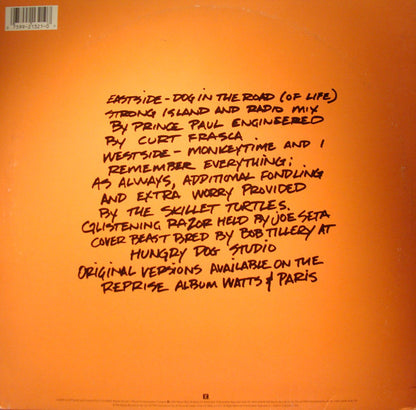 EASTSIDE - DOG IN THE ROAD (OF LIFE)
STRONG ISLAND AND RADIO MIX
BY PRINCE PAUL ENGINEERED
BY CURT FRASCA.
WESTSIDE - MONKEYTIME AND I
REMEMBER EVERYTHING;
AS ALWAYS, ADDITIONAL FONDLING
AND EXTRA WORRY PROVIDED
BY THE SKILLET TURTLES.
GLISTENING RAZOR HELD BY JOE SETA
COVER BEAST BRED BY BOB TILLERY AT
HUNGRY DOG STUDIO
ORIGINAL VERSIONS AVAILABLE ON THE
REPRISE ALBUM WATTS & PARIS